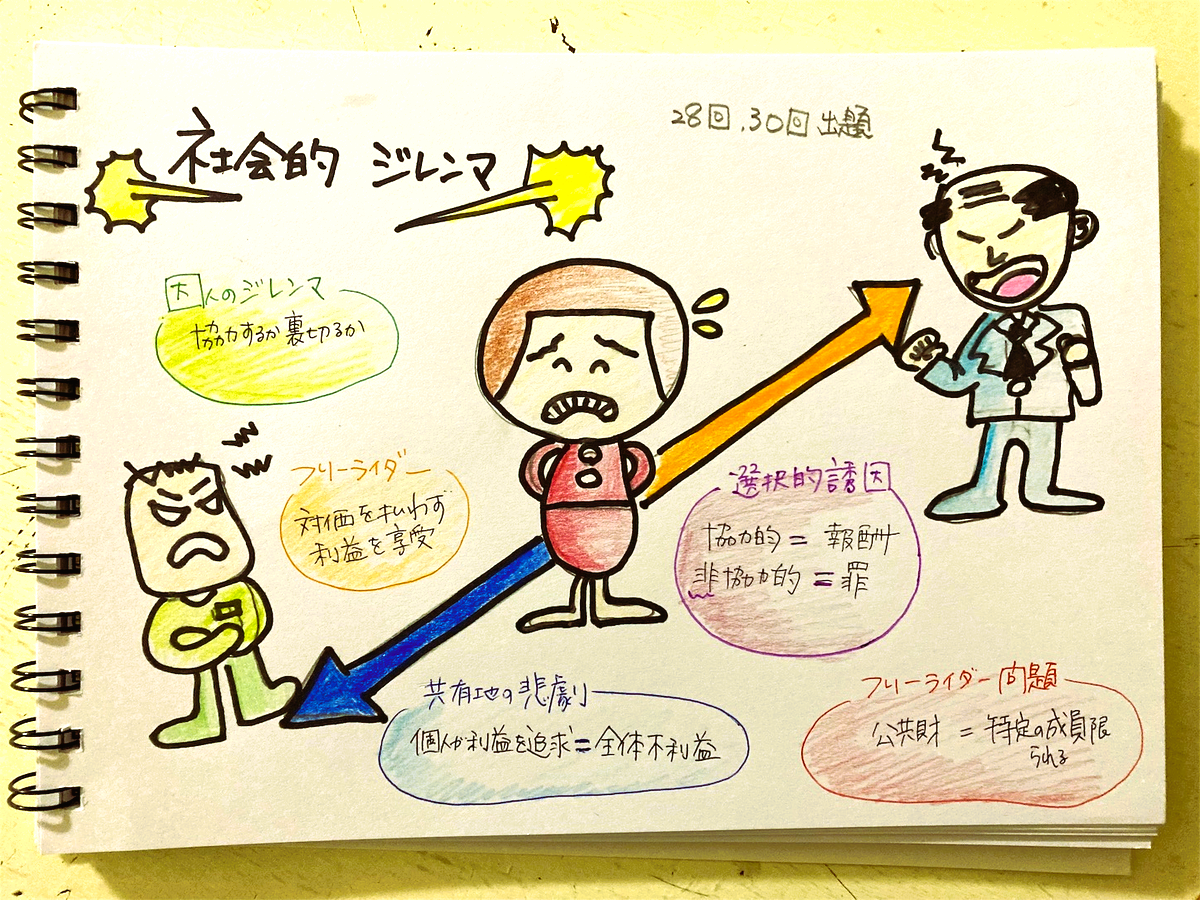 社会的 ジレンマ
28回.30回出題
囚人のジレンマ
協力するか裏切るか
フリーライダー
対価を払わず
利益を享受
選択的誘因
協力的 = 報酬
非協力的 = 罪
共有地の悲劇
個人が利益を追求=全体不利益
フリーライダー問題
公共財 = 特定の成員限
られる